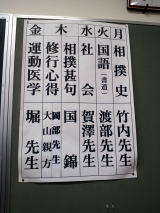 月 相撲史 竹内先生
火 国語(書道) 渡部先生
水 社会 賀澤先生
木 相撲甚句 国錦
修行心得 岡部先生 大山親方
金 運動医学 堀先生